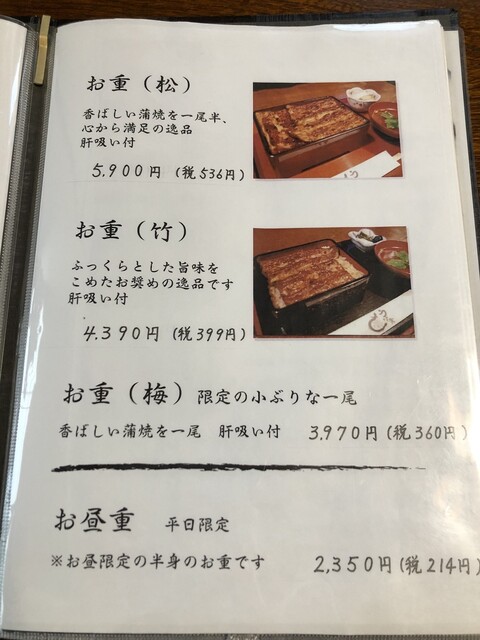 お重（松）
香ばしい蒲焼を一尾半、
心から満足の逸品
肝吸い付
5.900円（税536円）
お重（竹）
ふっくらとした旨味を
こめたお奨めの逸品です
肝吸い付
4.390円（税399円）
お重（梅）限定の小ぶりな一尾
香ばしい蒲焼を一尾　肝吸い付　3.970円（税360円）
お昼重　平日限定
※お昼限定の半身のお重です　2,350円（税214円）